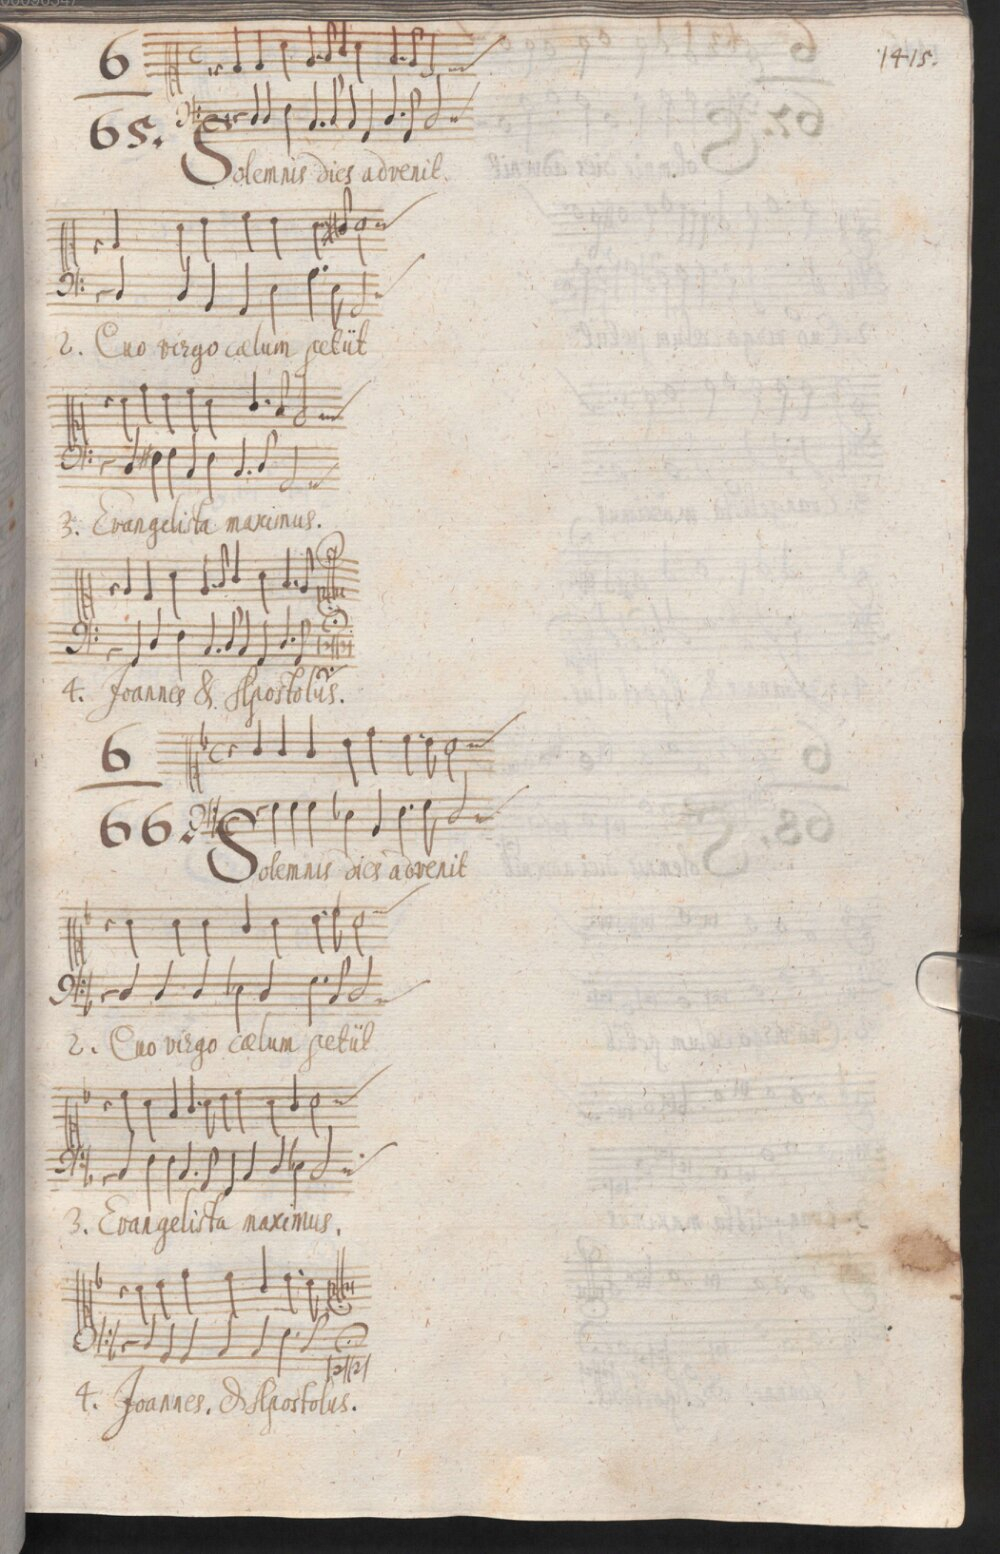 1415.
6
65.
Solemnis dies advenit.
2. Quo virgo cælum petiit
3. Evangelista maximus.
4. Joannes & Apostolus.
6
66.
Solemnis dies advenit
2. Quo virgo cælum petiit
3. Evangelista maximus.
4. Joannes. & Apostolus.